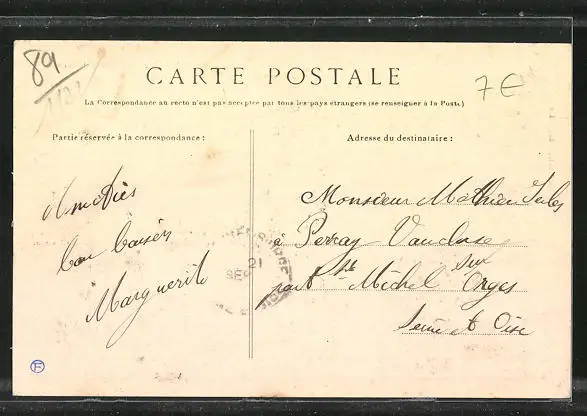 89
1121
7€
CARTE POSTALE
La Correspondance au recto n'est pas acceptée par tous les pays étrangers (se renseigner à la Poste)
Partie réservée à la correspondance :
Adresse du destinataire :
Amitiés
bon baisers
Marguerite
Monsieur Mathieu Jules
à Perray-Vaucluse
par Ste Michel sur Orges
Seine et Oise
21
SE
F